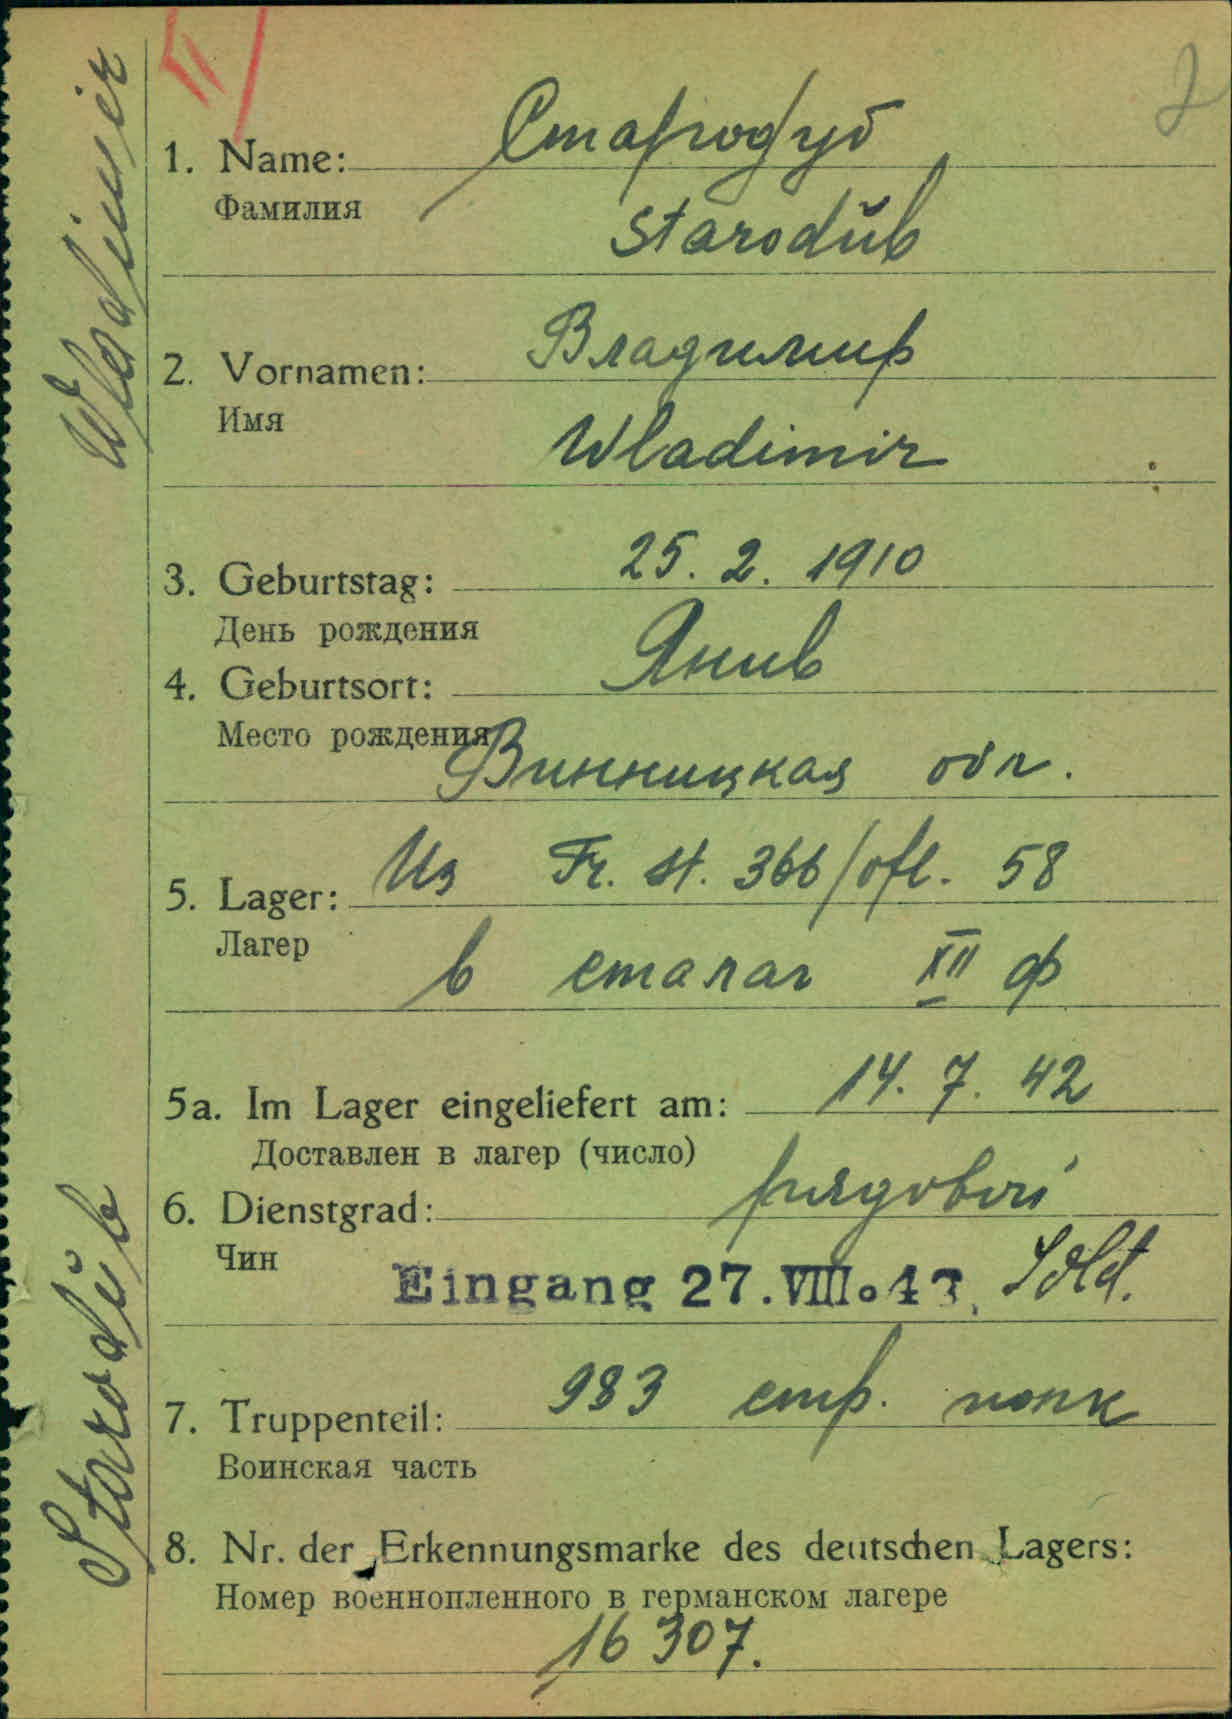 II
2
1. Name: Стародуб
Фамилия
Starodŭb
2. Vornamen: Владимир
Имя
Wladimir
3. Geburtstag: 25. 2. 1910
День рождения
4. Geburtsort: Янив
Место рождения
Винницкая обл.
5. Lager: Из Fr. st. 366/ofl. 58
Лагер
в сталаг XII ф
5a. Im Lager eingeliefert am: 14. 7. 42
Доставлен в лагер (число)
6. Dienstgrad: рядовой
Чин
Eingang 27.VIII.43. Sold.
7. Truppenteil: 983 стр. полк
Воинская часть
8. Nr. der Erkennungsmarke des deutschen Lagers:
Номер военнопленного в германском лагере
16 307.
Starodŭb Wladimir